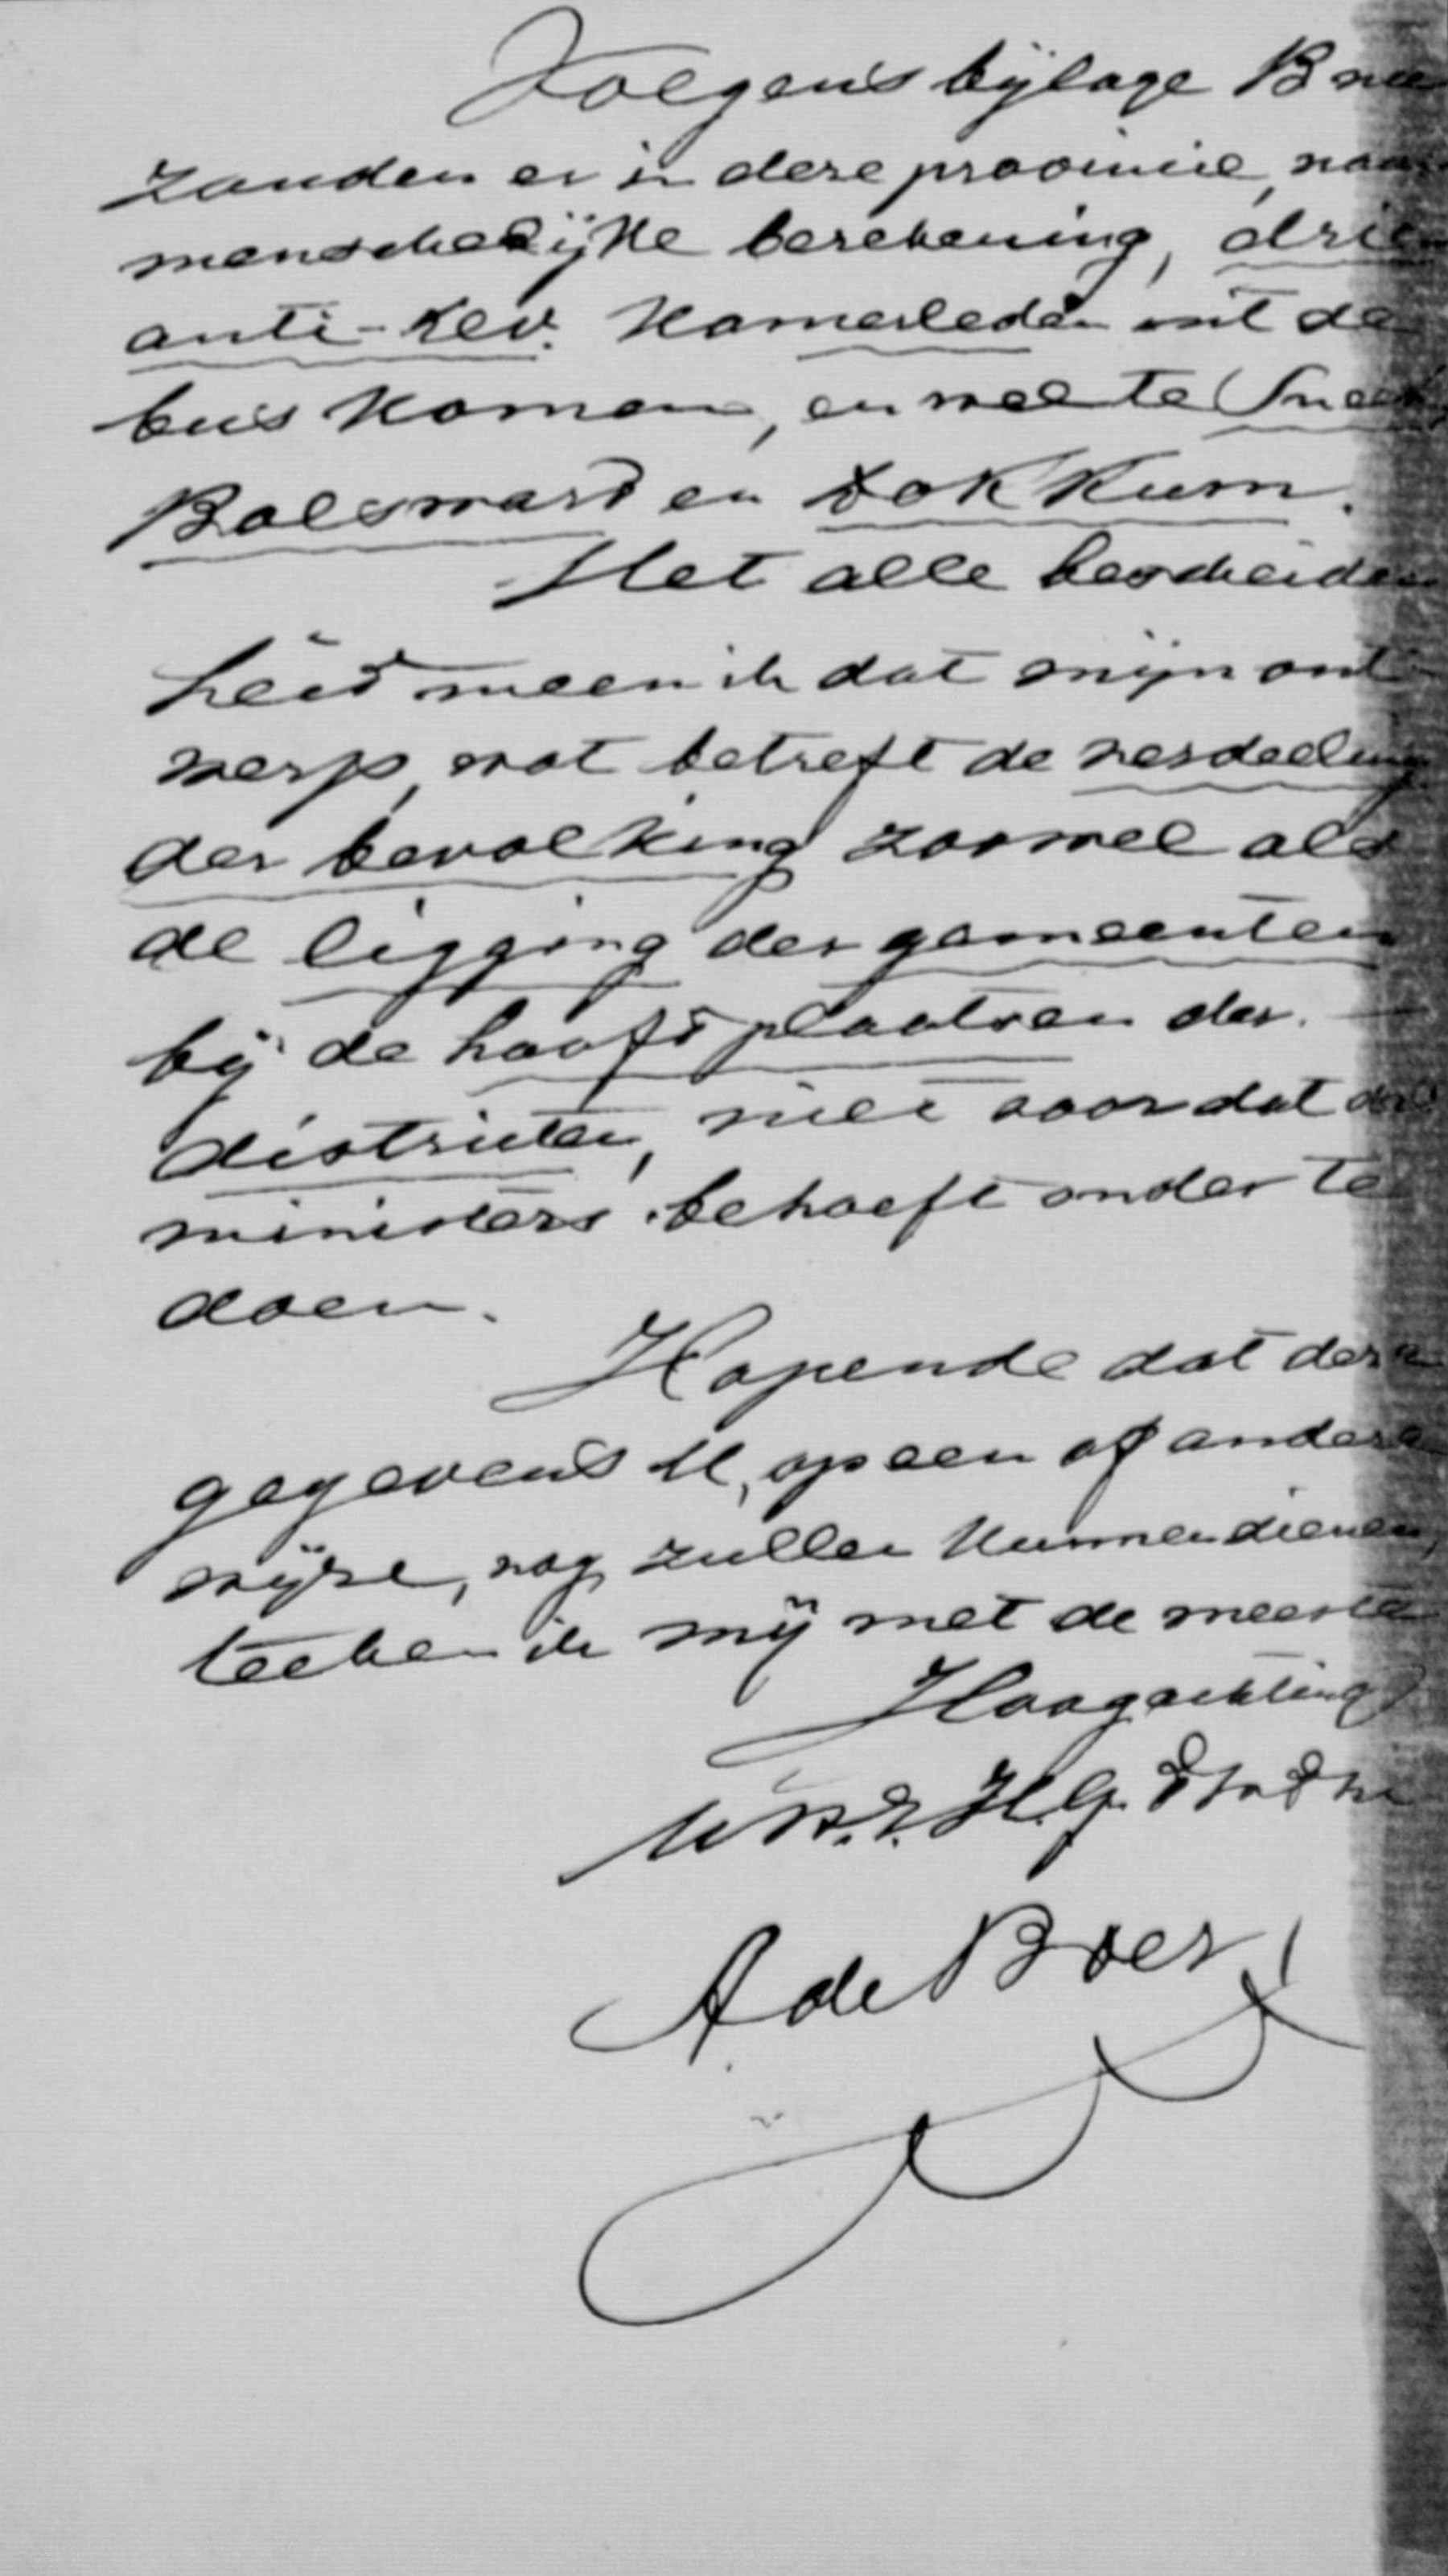 Volgens bijlage B
zouden er in deze provincie, naar
menschelijke berekening, drie
anti-rev. Kamerleden uit de
bus komen, en wel te Sneek,
Bolsward en Dokkum.
Met alle bescheiden
heid meen ik dat mijn ont
werp, wat betreft de verdeeling
der bevolking zoowel als
de ligging der gemeenten
bij de hoofdplaatsen der
districten, niet voor dat des
ministers behoeft onder te
doen.
Hopende dat deze
gegevens U, op een of andere
wijze, nog zullen kunnen dienen,
teeken ik mij met de meeste
Hoogachting
A de Boer